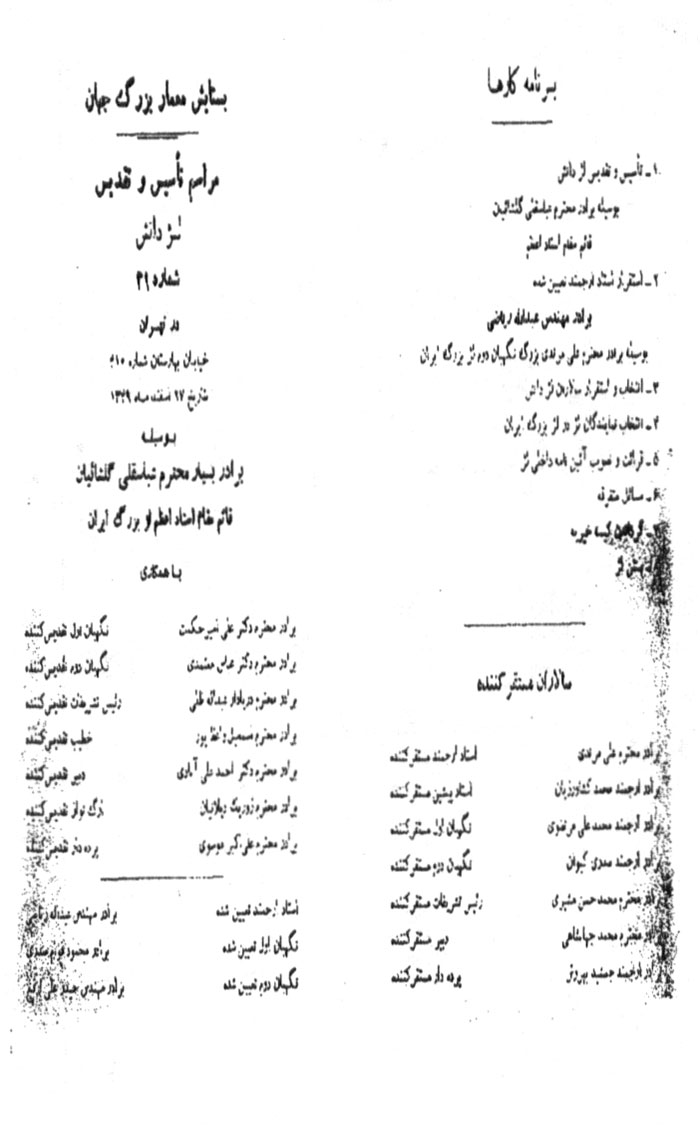 برنامه کارها
۱ـ تأسیس و تقدیس لژ دانش
بوسیله برادر محترم عباسقلی گلشائیان
قائم مقام استاد اعظم
۲ـ استقرار استاد ارجمند تعیین شده
برادر مهندس عبدالله ریاضی
بوسیله برادر محترم علی مرندی بزرگ نگهبان دوم لژ بزرگ ایران
۳ـ انتخاب و استقرار سالاران لژ دانش
۴ـ انتخاب نمایندگان لژ در لژ بزرگ ایران
۵ـ قرائت و تصویب آئین نامه داخلی لژ
۶ـ مسائل متفرقه
کیسه خیریه
لژ
سالاران مستقر کننده
برادر محترم علی مرندی استاد ارجمند مستقر کننده
برادر ارجمند محمد کشاورزیان استاد پیشین مستقر کننده
برادر ارجمند محمد علی مرتضوی نگهبان اول مستقر کننده
برادر ارجمند مهدی کیوان نگهبان دوم مستقر کننده
برادر محترم محمد حسن مشیری رئیس تشریفات مستقر کننده
برادر محترم محمد جهانشاهی دبیر مستقر کننده
برادر ارجمند جمشید پرده دار مستقر کننده
بستایش معمار بزرگ جهان
مراسم تأسیس و تقدیس
لژ دانش
شماره ۳۱
در تهران
خیابان بهارستان شماره
تاریخ ۱۷ اسفند ماه ۱۳۴۹
بوسیله
برادر بسیار محترم عباسقلی گلشائیان
قائم مقام استاد اعظم لژ بزرگ ایران
با همکاری
برادر محترم دکتر علی نصیر حکمت نگهبان اول تقدیس کننده
برادر محترم دکتر عباس نگهبان دوم تقدیس کننده
برادر محترم دریادار عبدالله ظلی رئیس تشریفات تقدیس کننده
برادر محترم اسمعیل واعظ پور خطیب تقدیس کننده
برادر محترم دکتر احمد علی آبادی دبیر تقدیس کننده
برادر محترم ارگ نواز تقدیس کننده
برادر محترم علی اکبر موسوی پرده دار تقدیس کننده
استاد ارجمند تعیین شده برادر مهندس عبدالله ریاضی
نگهبان اول تعیین شده برادر محمود
نگهبان دوم تعیین شده برادر مهندس علی